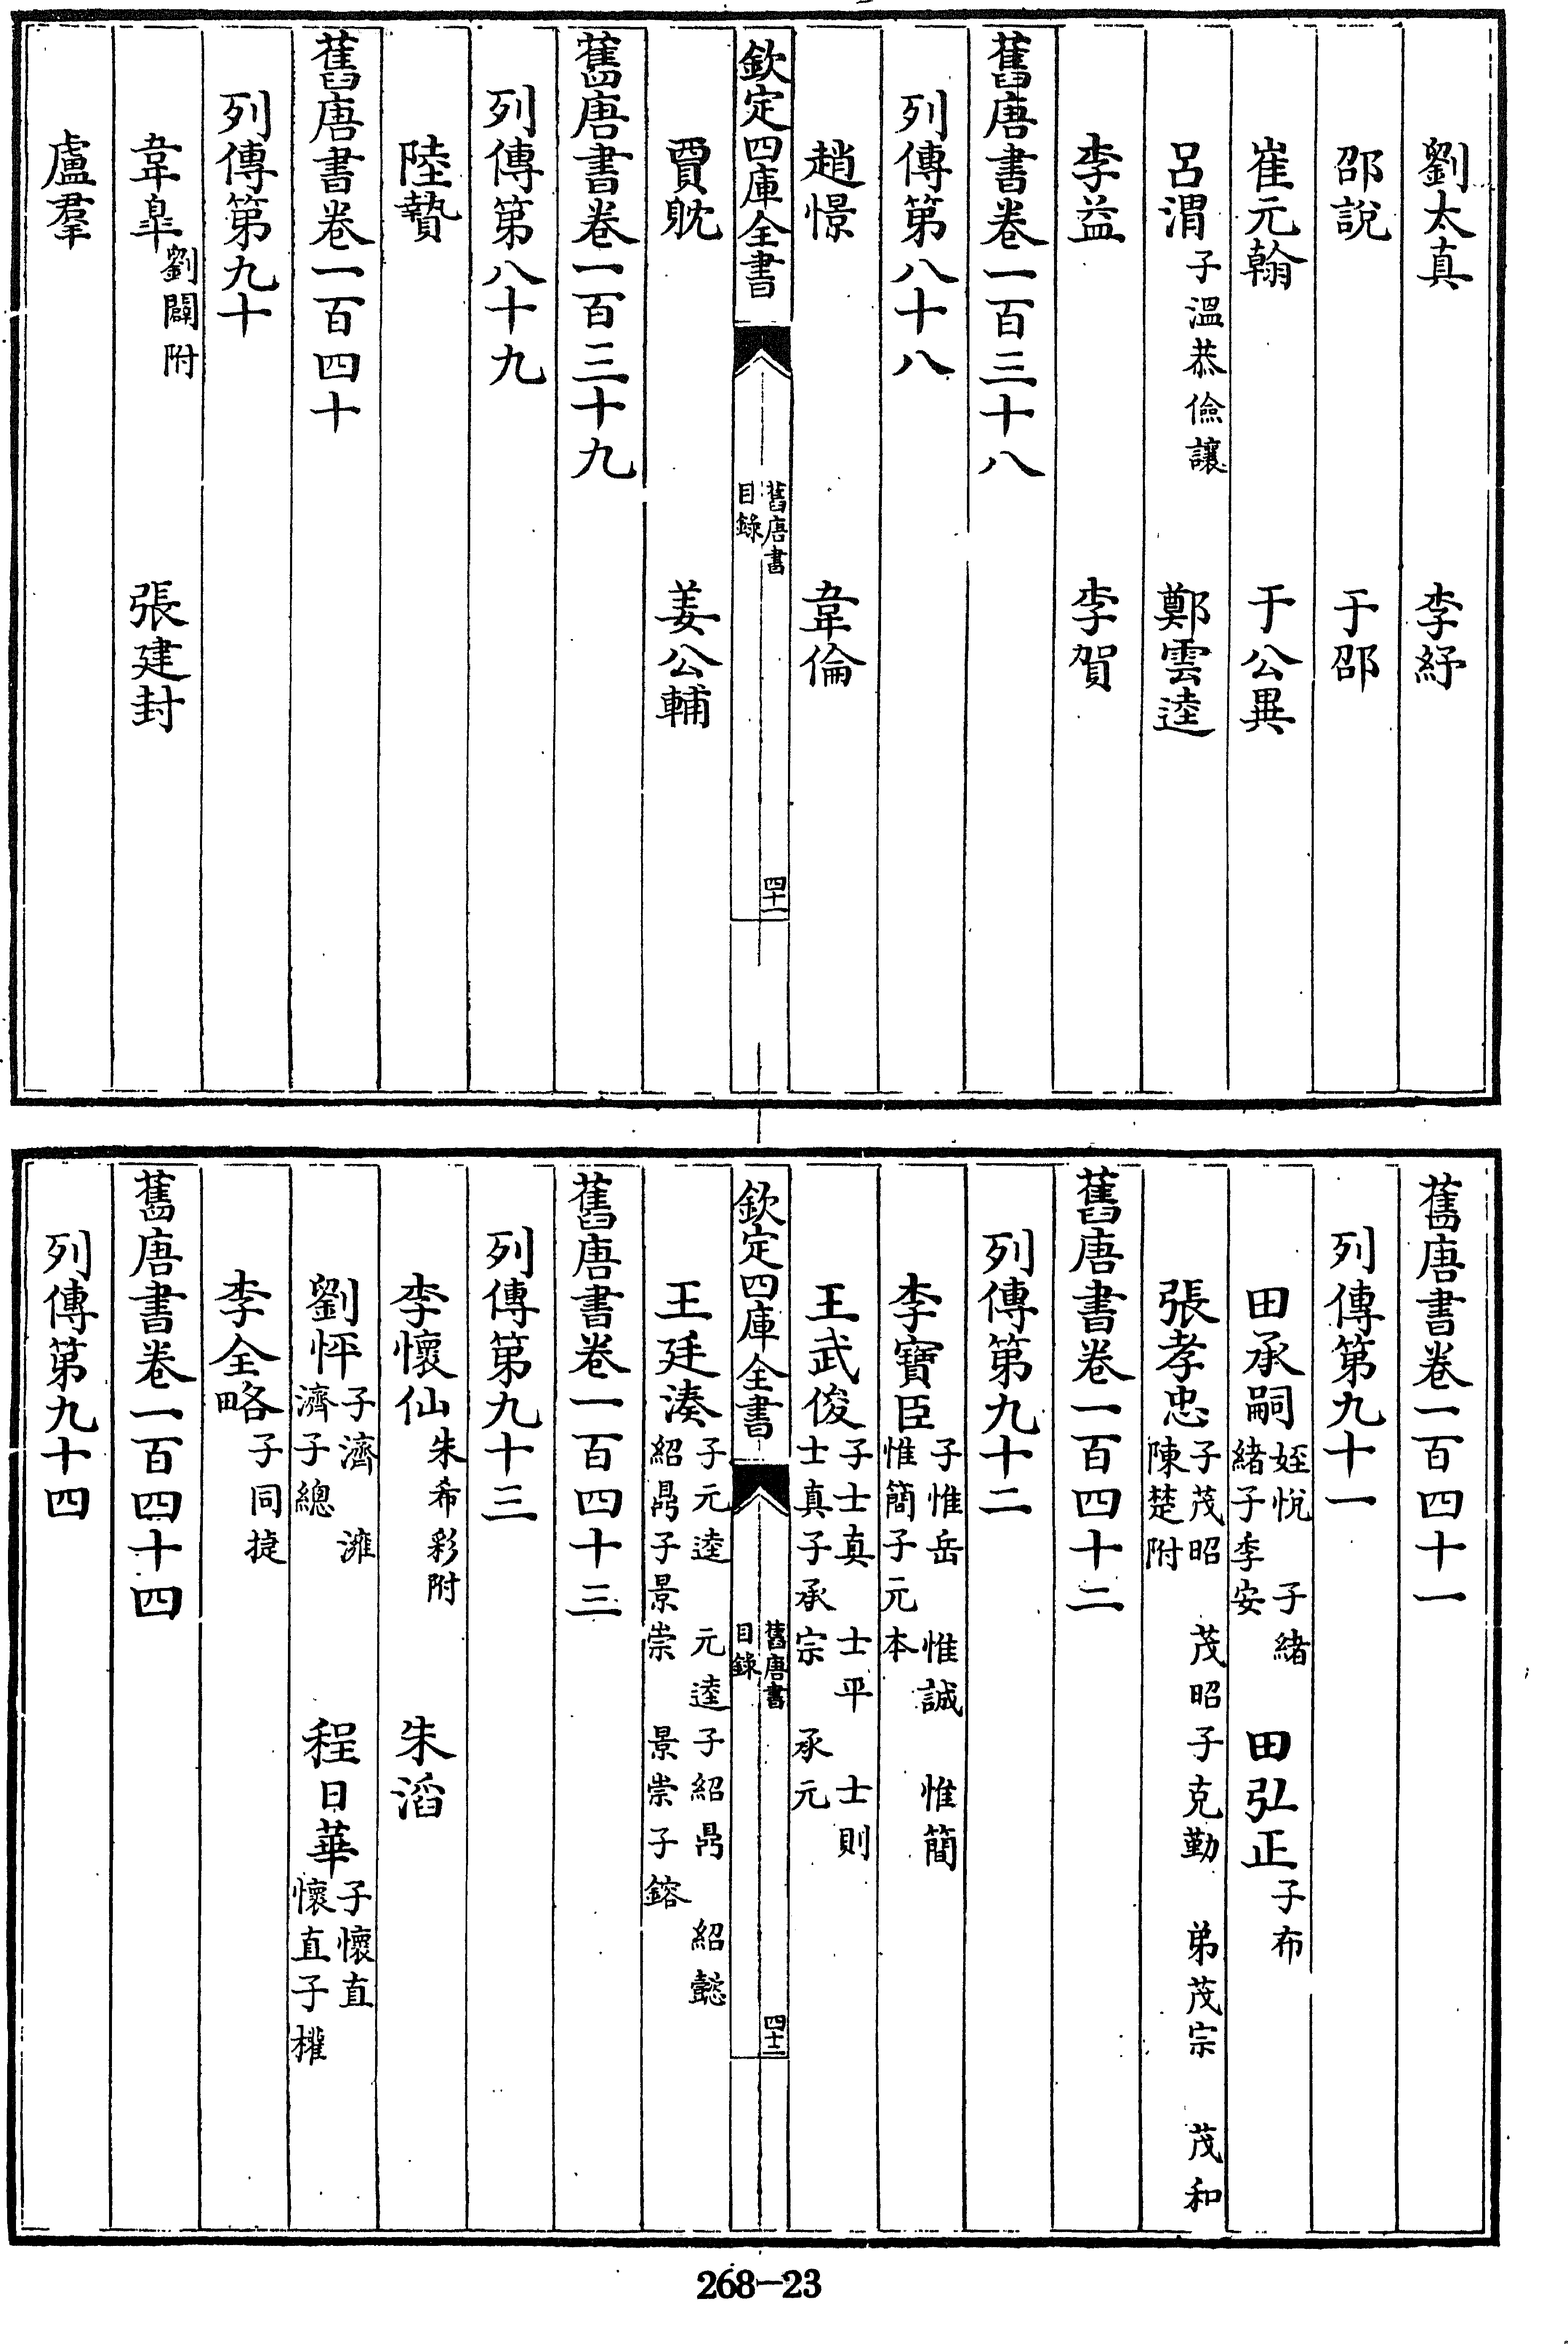 劉太真　李紓
邵說　于邵
崔元翰　于公異
呂渭子溫恭儉讓　鄭雲逵
李益　李賀
舊唐書卷一百三十八
列傳第八十八
趙憬　韋倫
欽定四庫全書　舊唐書目錄　四十一
賈耽　姜公輔
舊唐書卷一百三十九
列傳第八十九
陸贄
舊唐書卷一百四十
列傳第九十
韋臯劉闢附　張建封
盧羣
舊唐書卷一百四十一
列傳第九十一
田承嗣姪悅　子緒　緒子季安　田弘正子布
張孝忠子茂昭　茂昭子克勤　弟茂宗　茂和　陳楚附
舊唐書卷一百四十二
列傳第九十二
李寶臣子惟岳　惟誠　惟簡　惟簡子元本
王武俊子士真　士平　士則　士真子承宗　承元
欽定四庫全書　舊唐書目錄　四十二
王廷湊子元逵　元逵子紹鼎　紹懿　紹鼎子景崇　景崇子鎔
舊唐書卷一百四十三
列傳第九十三
李懷仙朱希彩附　朱滔
劉怦子濟　澭　濟子總　程日華子懷直　懷直子權
李全略子同捷
舊唐書卷一百四十四
列傳第九十四
268-23